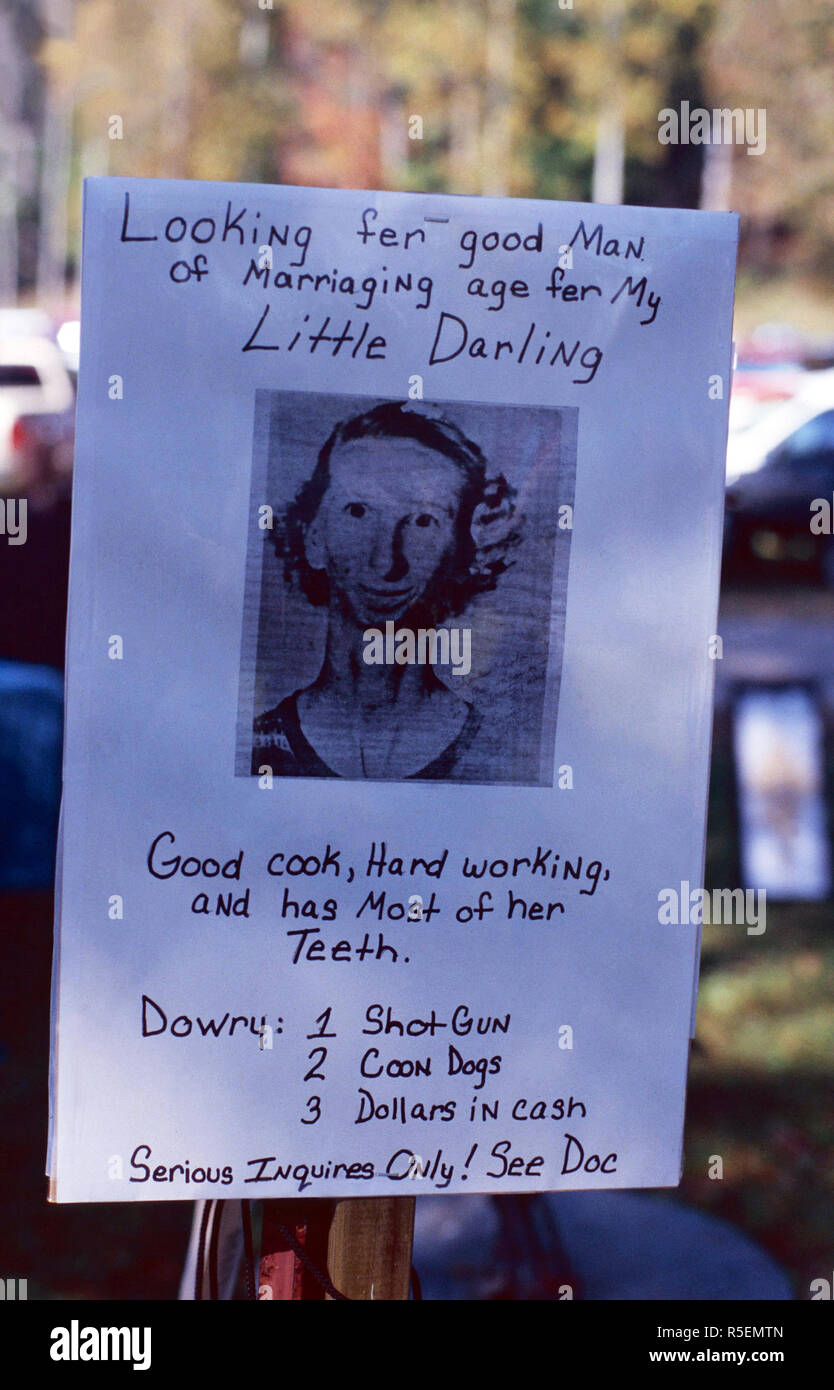 Looking fer good Man
of Marriaging age fer My
Little Darling
Good cook, Hard working,
and has Most of her
Teeth.
Dowry: 1 Shot Gun
2 Coon Dogs
3 Dollars in cash
Serious Inquires Only! See Doc
alamy
alamy
alamy
Image ID: R5EMTN
www.alamy.com